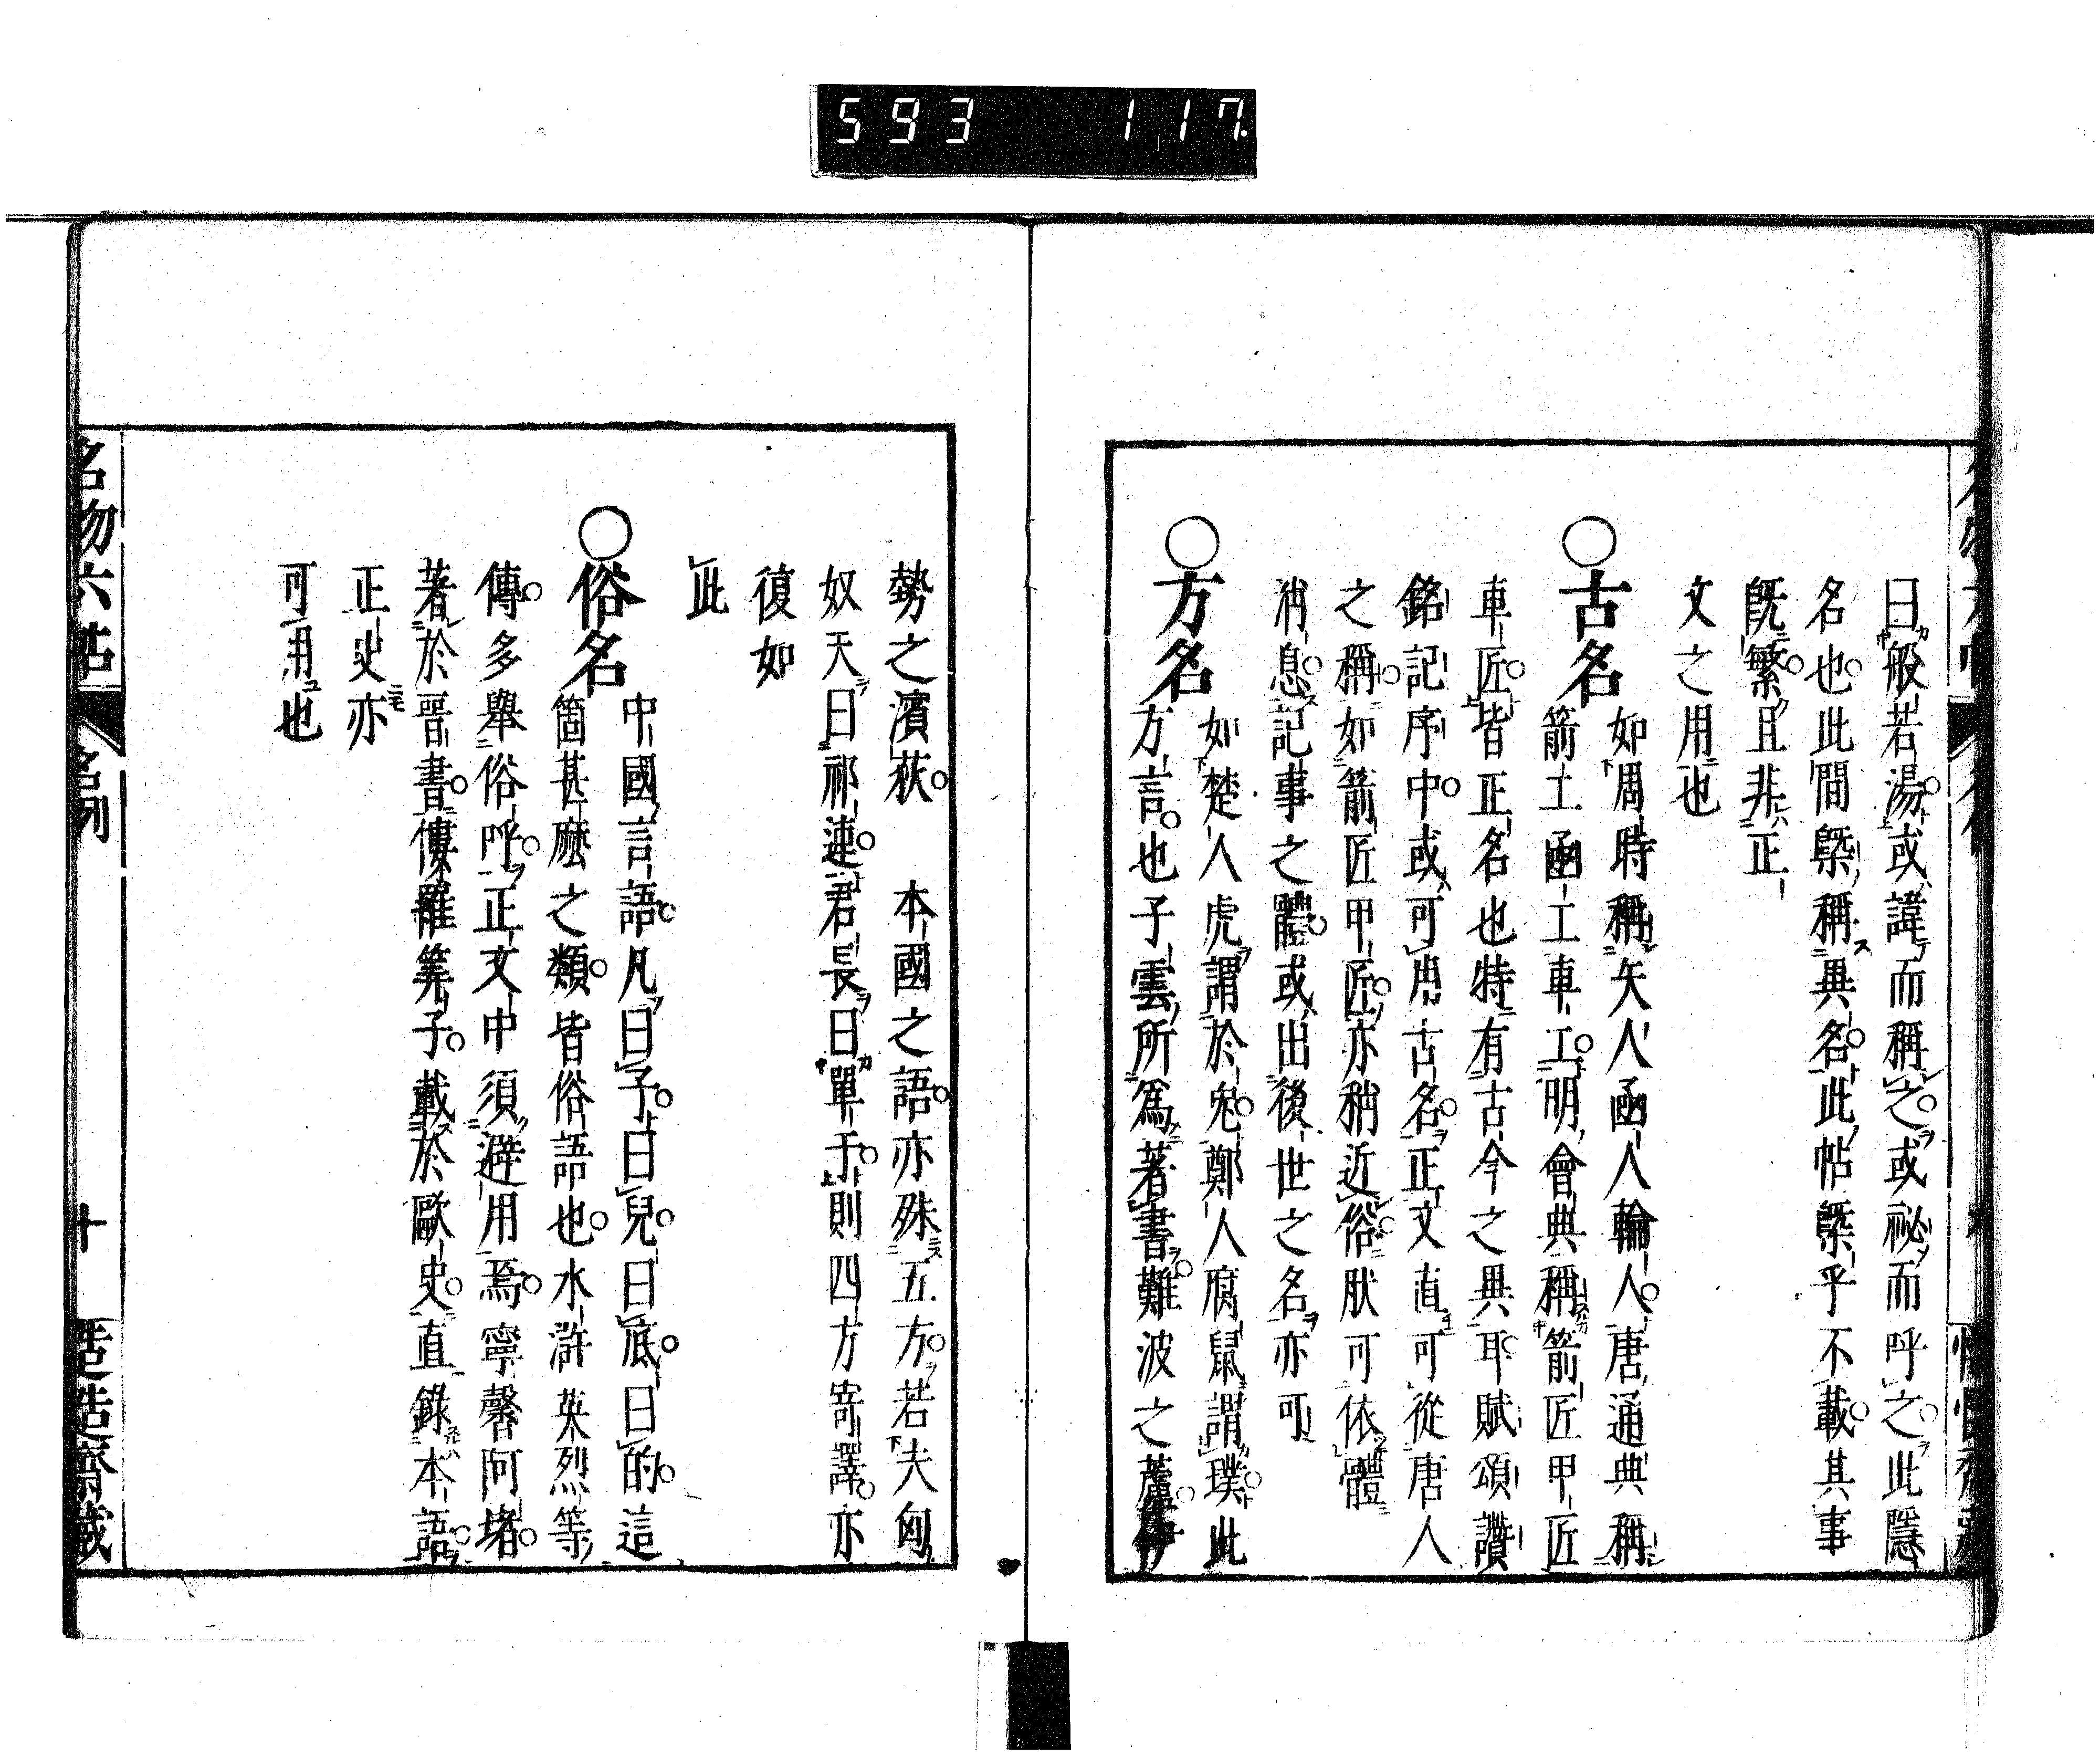 593 117.
曰般若湯或諱而稱之或祕而呼之此隱
名也此間槩稱異名此帖槩乎不載其事
既繁且非正
文之用也
○古名
如周時稱矢人函人輪人唐通典稱
箭工函工車工明會典稱箭匠甲匠
車匠皆正名也特有古今之異耳賦頌讚
銘記序中或可用古名正文直可從唐人
之稱如箭匠甲匠亦稍近俗肰可依體
消息記事之體或出後世之名亦可
○方名
如楚人虎謂於兔鄭人腐鼠謂璞此
方言也子雲所爲著書難波之蘆伊
勢之濱荻 本國之語亦殊五方若夫匈
奴天曰祁連君長曰單于則四方寄譯亦
復如
此
○俗名
中國言語凡曰子曰兒曰底曰的這
箇甚麽之類皆俗語也水滸英烈等
傳多舉俗呼正文中須避用焉寧馨阿堵
著於晉書僂羅筭子載於歐史直錄本語
正史亦
可用也
名物六帖
十